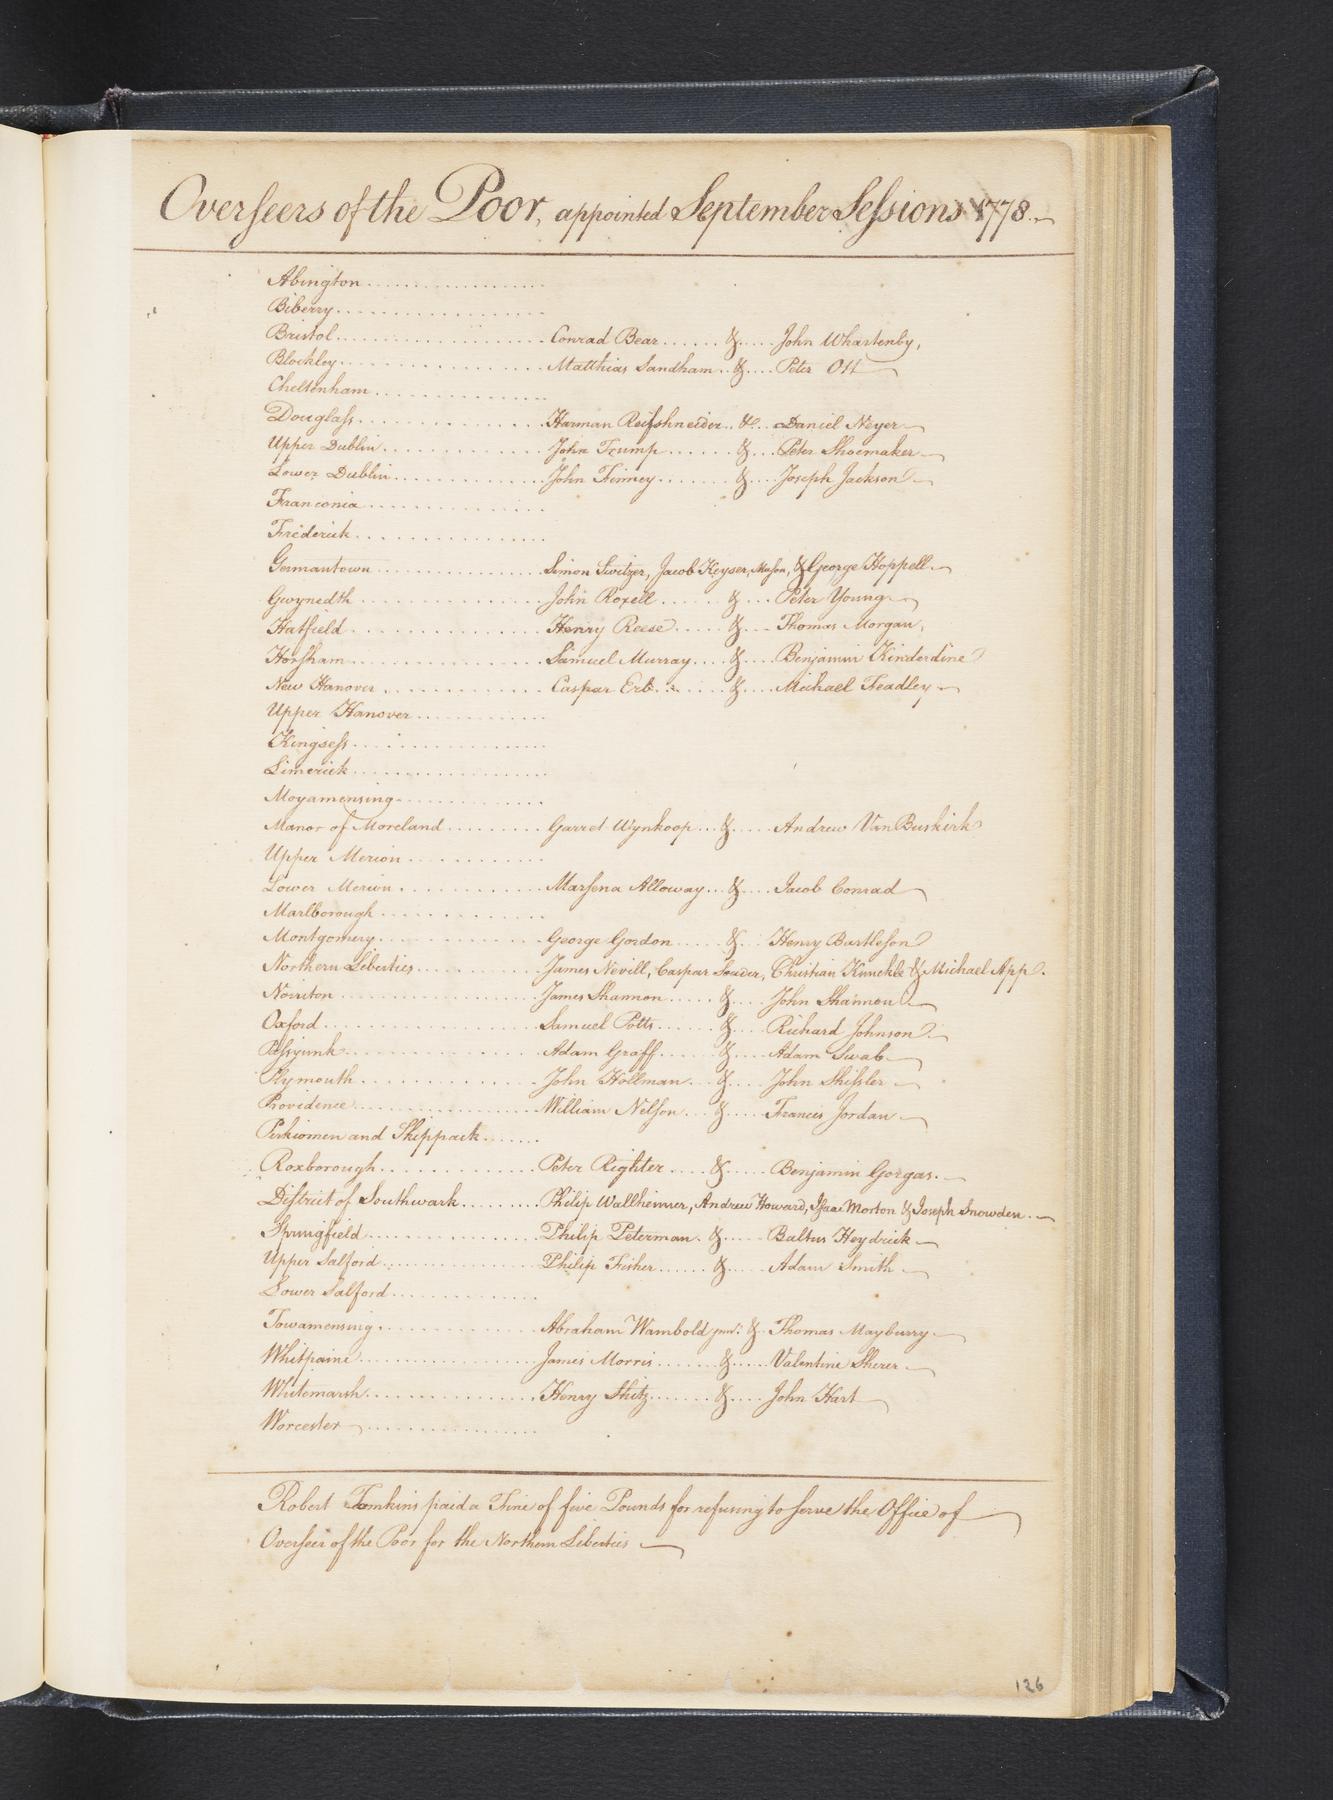 Overseers of the Poor, appointed September Sessions 1778.
Abington
Biberry
Bristol Conrad Bear & John Whartenby,
Blockley Matthias Sandham & Peter Ott
Cheltenham
Douglass Harman Reifshneider & Daniel Neyer
Upper Dublin John Trump & Peter Shoemaker
Lower Dublin John Finney & Joseph Jackson
Franconia
Frederick
Germantown Simon Switzer, Jacob Keyser, Mason, & George Hoppell
Gwynedth John Roxell & Peter Young
Hatfield Henry Reese & Thomas Morgan,
Horsham Samuel Murray & Benjamin Kinderdine
New Hanover Caspar Erb & Michael Feadley
Upper Hanover
Kingsess
Limerick
Moyamensing
Manor of Moreland Garret Wynkoop & Andrew VanBuskirk
Upper Merion
Lower Merion Marsena Alloway & Jacob Conrad
Marlborough
Montgomery George Gordon & Henry Bartleson
Northern Liberties James Nevill, Caspar Souder, Christian Kunckle & Michael App.
Norriton James Shannon & John Shannon
Oxford Samuel Potts & Richard Johnson
Passyunk Adam Graff & Adam Swab
Plymouth John Hollman & John Shissler
Providence William Nelson & Francis Jordan
Perkiomen and Skippack
Roxborough Peter Righter & Benjamin Gorgas.
District of Southwark Philip Wallheimer, Andrew Howard, Isaac Morton & Joseph Snowden.
Springfield Philip Peterman & Baltus Heydrick
Upper Salford Philip Fisher & Adam Smith
Lower Salford
Towamensing Abraham Wambold junr. & Thomas Mayburry
Whitpaine James Morris & Valentine Sherer
Whitemarsh Henry Shitz & John Hart
Worcester
Robert Tomkins paid a Fine of five Pounds for refusing to serve the Office of
Overseer of the Poor for the Northern Liberties
126